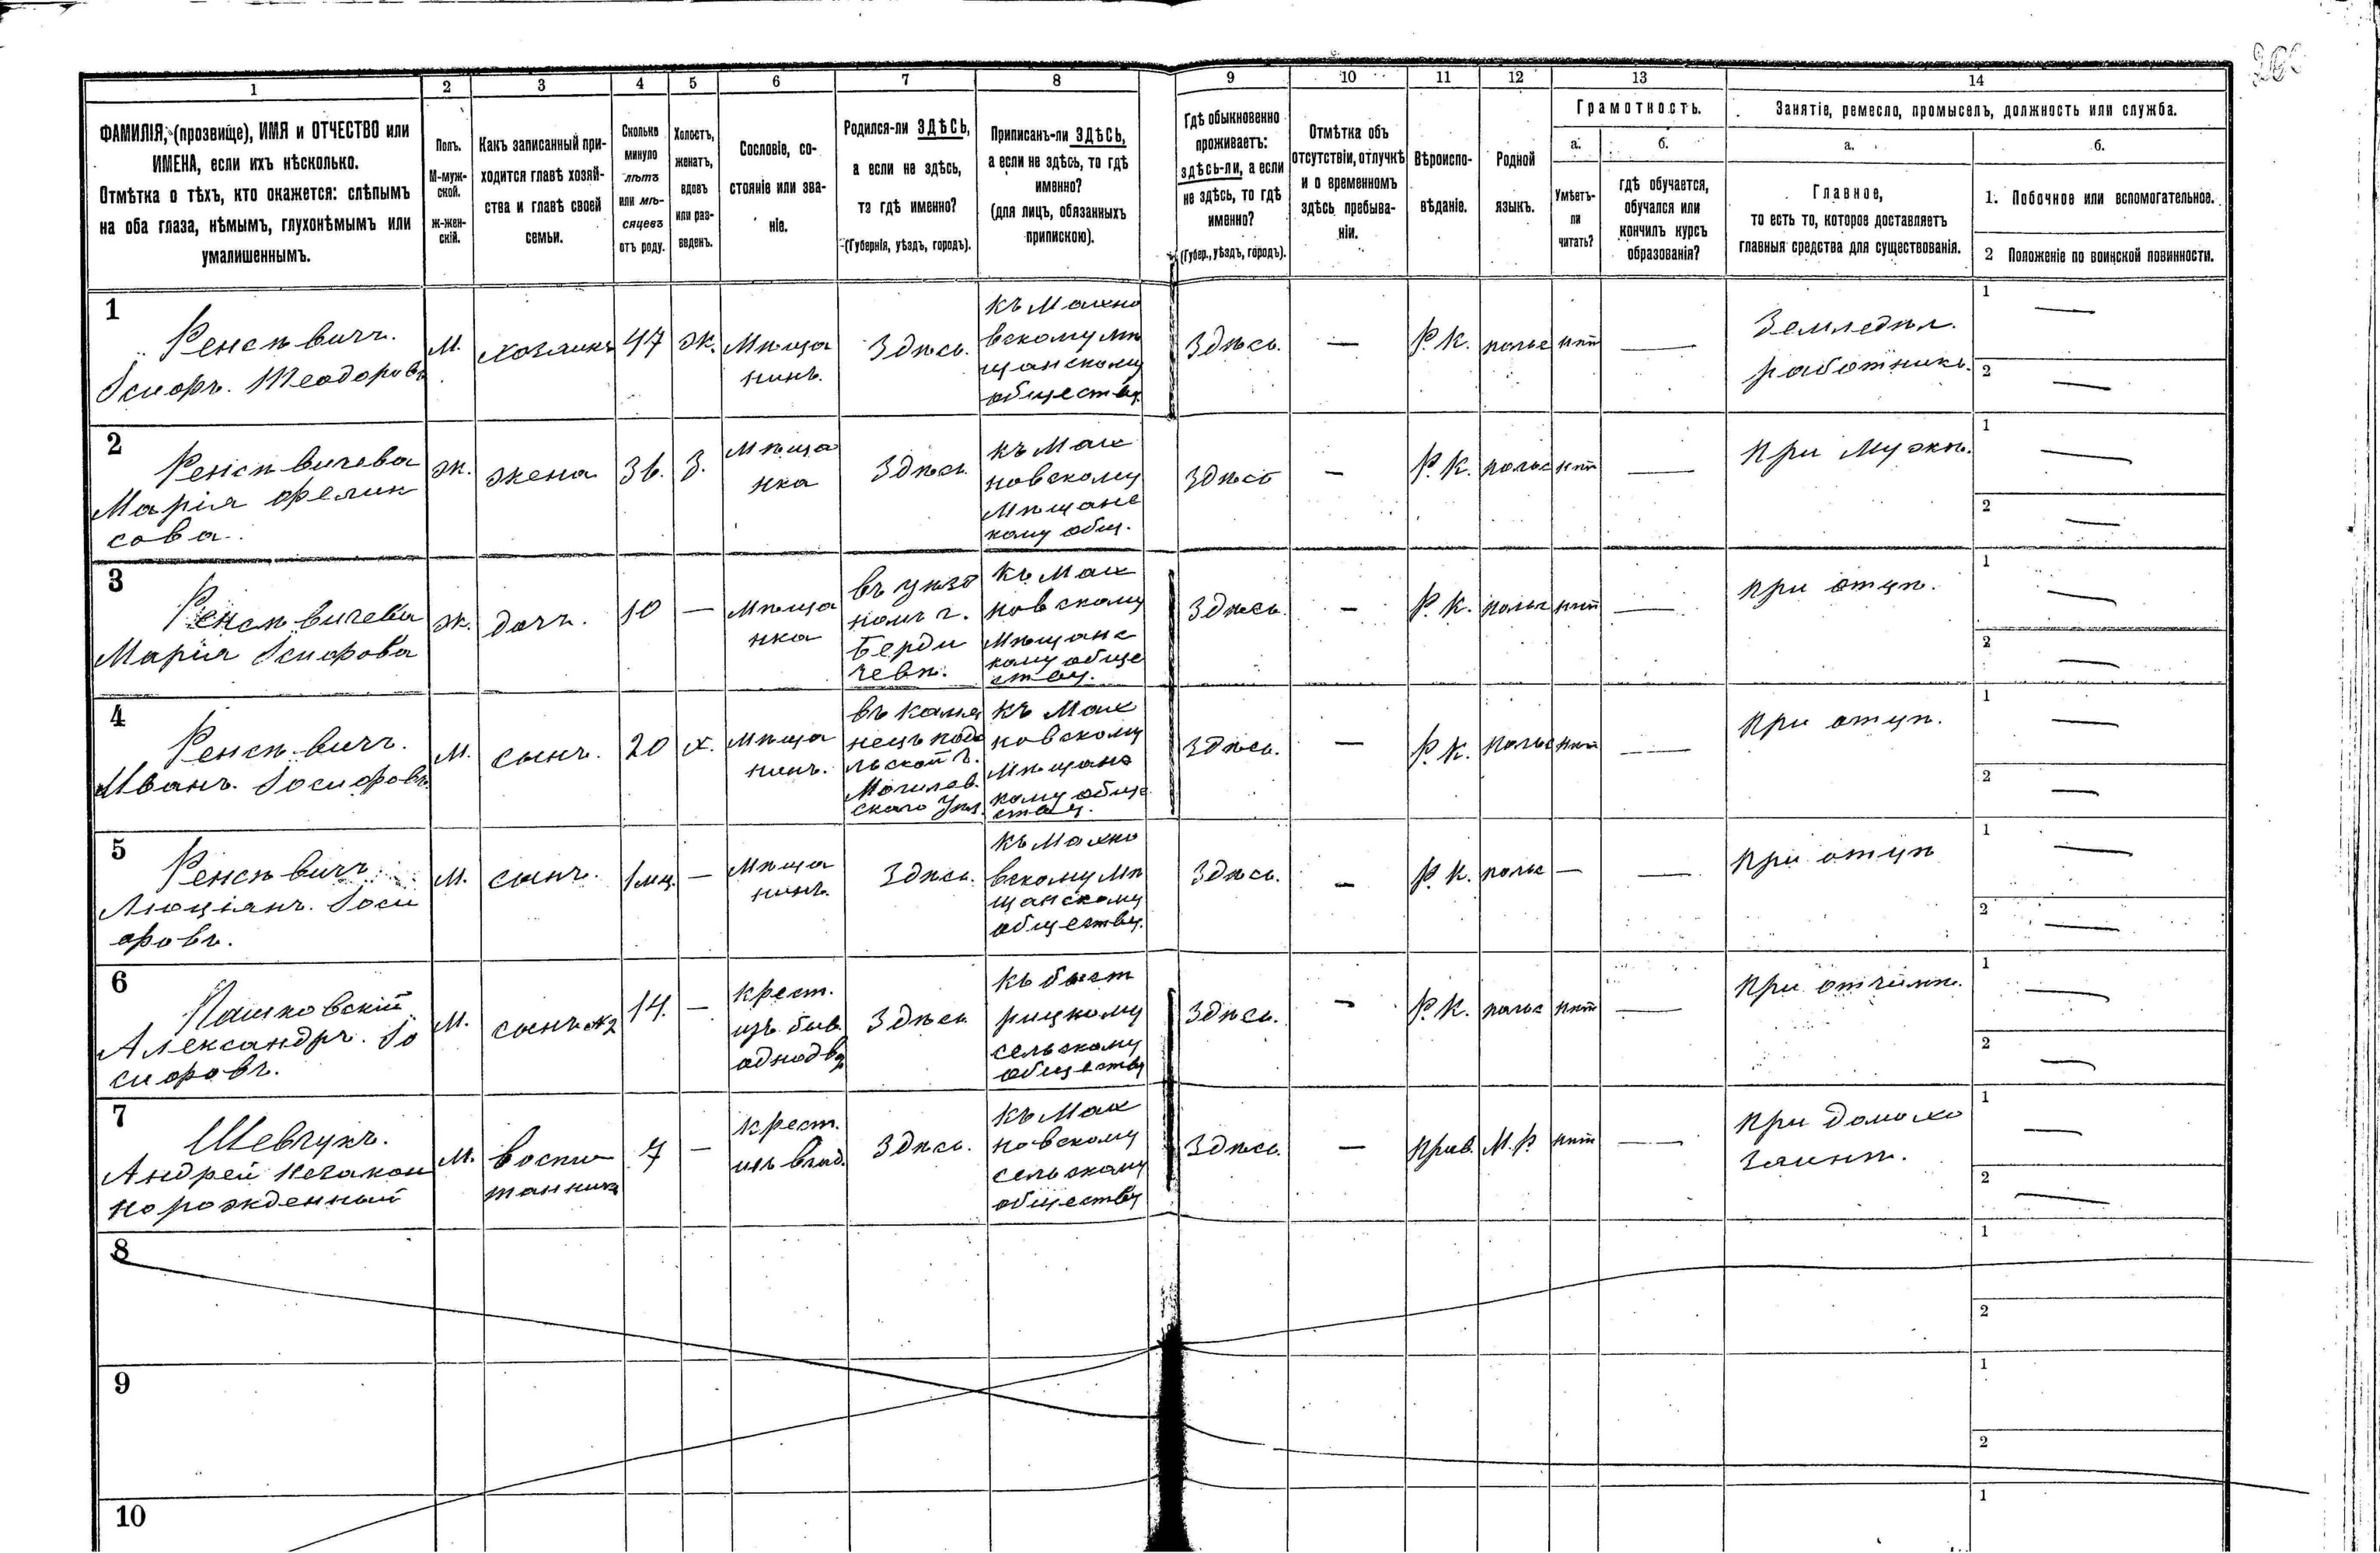 1 2 3 4 5 6 7 8 9 10 11 12 13 14
ФАМИЛІЯ, (прозвище), ИМЯ и ОТЧЕСТВО или
ИМЕНА, если ихъ нѣсколько.
Отмѣтка о тѣхъ, кто окажется: слѣпымъ
на оба глаза, нѣмымъ, глухонѣмымъ или
умалишеннымъ.
Полъ.
М-муж-
ской.
ж-жен-
скій.
Какъ записанный при-
ходится главѣ хозяй-
ства и главѣ своей
семьи.
Сколько
минуло
лѣтъ
или мѣ-
сяцевъ
отъ роду.
Холостъ,
женатъ,
вдовъ
или раз-
веденъ.
Сословіе, со-
стояніе или зва-
ніе.
Родился-ли ЗДѢСЬ,
а если не здѣсь,
то гдѣ именно?
(Губернія, уѣздъ, городъ).
Приписанъ-ли ЗДѢСЬ,
а если не здѣсь, то гдѣ
именно?
(для лицъ, обязанныхъ
припискою).
Гдѣ обыкновенно
проживаетъ:
здѣсь-ли, а если
не здѣсь, то гдѣ
именно?
(Губер., уѣздъ, городъ).
Отмѣтка объ
отсутствіи, отлучкѣ
и о временномъ
здѣсь пребыва-
ніи.
Вѣроиспо-
вѣданіе.
Родной
языкъ.
Грамотность.
а.
Умѣетъ-
ли
читать?
б.
гдѣ обучается,
обучался или
кончилъ курсъ
образованія?
Занятіе, ремесло, промыселъ, должность или служба.
а.
Главное,
то есть то, которое доставляетъ
главныя средства для существованія.
б.
1. Побочное или вспомогательное.
2 Положеніе по воинской повинности.
1
М.
хозяинъ
47
ж.
Мѣща
нинъ.
Здѣсь.
къ Махно
вскому мѣ
щанскому
обществу.
Здѣсь.
—
Р. К.
польс
нѣт
—
Земледѣл.
работникъ.
1 —
2 —
2
Марія
сова.
ж.
жена
З.
Мѣща
нка
Здѣсь
къ Мах
новскому
Мѣщанс
кому общ.
Здѣсь
—
Р. К.
польс
нѣт
—
при мужѣ.
1 —
2 —
3
Марія Осифова
ж.
дочь.
10
—
Мѣща
нка
въ уѣзд
номъ г.
Берди
чевѣ.
къ Мах
новскому
Мѣщанс
кому обще
ству.
Здѣсь.
—
Р. К.
польс
нѣт
—
при отцѣ.
1 —
2 —
4
Иванъ. Іосифовъ.
М.
сынъ.
20
х.
Мѣща
нинъ.
Могилев.
къ Мах
новскому
Мѣщанс
кому обще
ству.
Здѣсь.
—
Р. К.
польс
нѣт
—
при отцѣ.
1 —
2 —
5
Люціянъ. Іоси
фовъ.
М.
сынъ.
1 мц.
—
Мѣща
нинъ.
Здѣсь.
къ Махно
вскому мѣ
щанскому
обществу.
Здѣсь.
—
Р. К.
польс
—
—
при отцѣ
1 —
2 —
6
Пашковскій
Александръ. Іо
сифовъ.
М.
сынъ №2
14.
—
крест.
изъ быв.
однодв.
Здѣсь
къ быст
рицкому
сельскому
обществу
Здѣсь.
—
Р. К.
польс
нѣт
—
при отчимѣ.
1 —
2 —
7
Шевчукъ.
Андрей незакон
норожденный
М.
воспи
танникъ
7
—
крест.
изъ влад.
Здѣсь.
къ Мах
новскому
сельскому
обществу
Здѣсь.
—
прав.
М. р.
нѣт
—
при домохо
заинѣ.
1 —
2 —
8
1
2
9
1
2
10
1